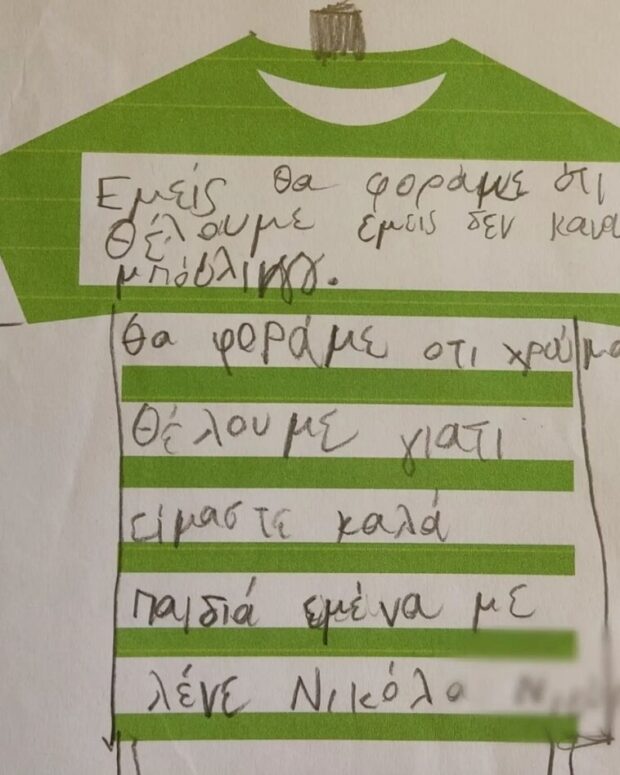 Εμείς θα φοράμε ότι
θέλουμε εμεις δεν κανα
μπούλινγγ.
θα φοράμε οτι χρώμα
θέλουμε γιατι
είμαστε καλά
παιδιά εμένα με
λένε Νικόλα